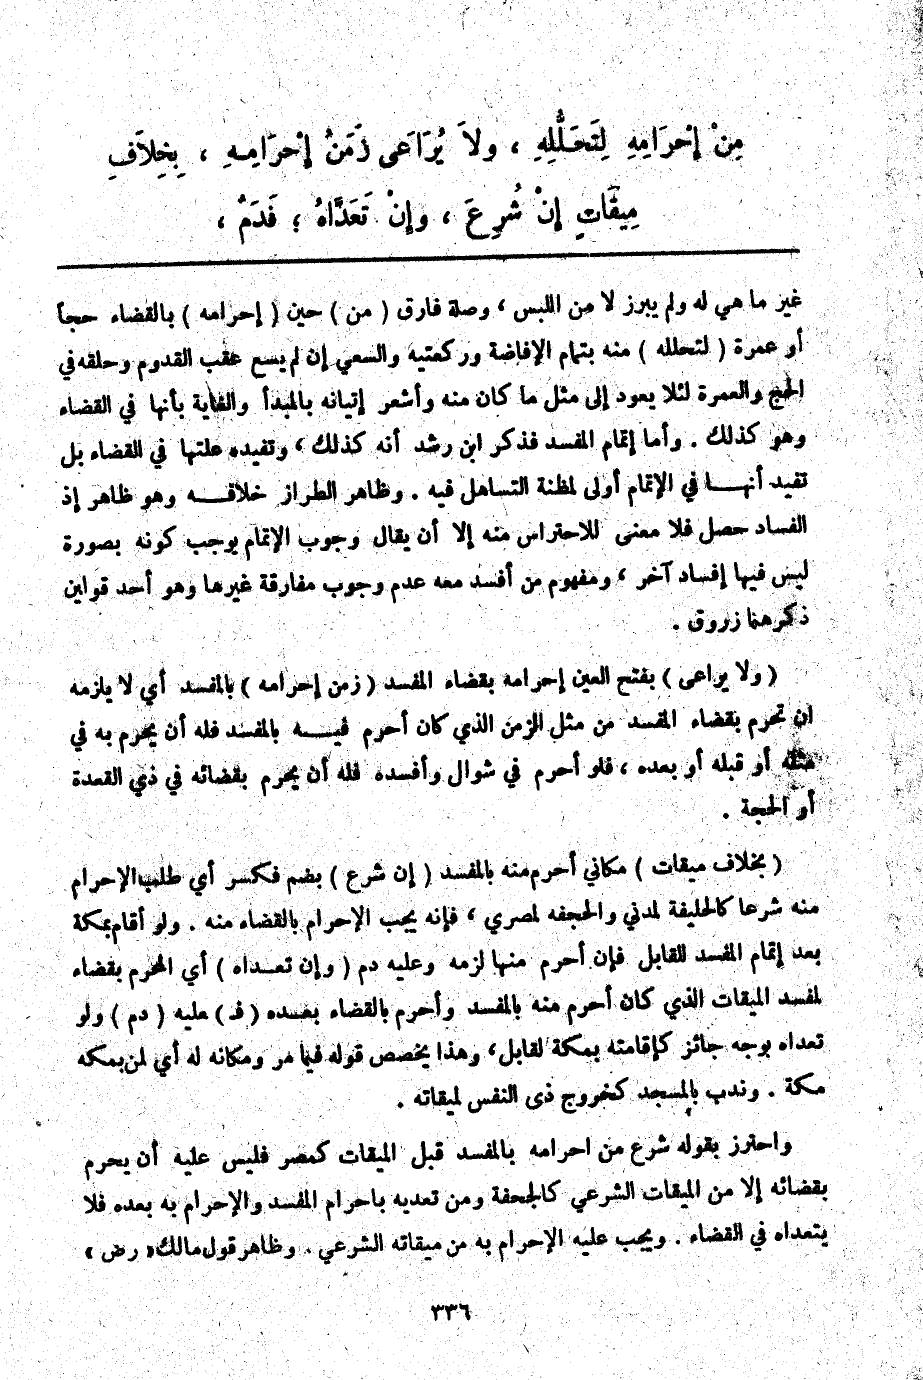 مِنْ إِحْرَامِهِ لِتَحَلُّلِهِ ، ولاَ يُرَاعَى زَمَنُ إِحْرَامِهِ ، بِخِلاَفِ
مِيقَاتٍ إِنْ شُرِعَ ، وإِنْ تَعَدَّاهُ ؛ فَدَمٌ ،
غير ما هي له ولم يبرز لا من اللبس ، وصلة فارق ( من ) حين ( إحرامه ) بالقضاء حجاً
أو عمرة ( لتحلله ) منه بتمام الإفاضة وركعتيه والسعي إن لم يسع عقب القدوم وحلقه في
الحج والعمرة لئلا يعود إلى مثل ما كان منه وأشعر إتيانه بالمبدأ والغاية بأنها في القضاء
وهو كذلك . وأما إتمام المفسد فذكر ابن رشد أنه كذلك ، وتفيده علتها في القضاء بل
تفيد أنهـا في الإتمام أولى لمظنة التساهل فيه . وظاهر الطراز خلافـه وهو ظاهر إذ
الفساد حصل فلا معنى للاحتراس منه إلا أن يقال وجوب الإتمام يوجب كونه بصورة
ليس فيها إفساد آخر ، ومفهوم من أفسد معه عدم وجوب مفارقة غيرها وهو أحد قولين
ذكرهما زروق .
( ولا يراعى ) بفتح العين إحرامه بقضاء المفسد ( زمن إحرامه ) بالمفسد أي لا يلزمه
ان تحرم بقضاء المفسد من مثل الزمن الذي كان أحرم فيـه بالمفسد فله أن يحرم به في
مثله أو قبله أو بعده ، فلو أحرم في شوال وأفسده فله أن يحرم بقضائه في ذي القعدة
أو الحجة .
( بخلاف ميقات ) مكاني أحرم منه بالمفسد ( إن شرع ) بضم فكسر أي طلب الإحرام
منه شرعا كالحليفة لمدني والجحفه لمصري ، فإنه يجب الإحرام بالقضاء منه . ولو أقام بمكة
بعد إتمام المفسد للقابل فإن أحرم منها لزمه وعليه دم ( وإن تعـداه ) أي المحرم بقضاء
لمفسد الميقات الذي كان أحرم منه بالمفسد وأحرم بالقضاء بعـده ( فـ ) عليه ( دم ) ولو
تعداه بوجه جائز كإقامته بمكة لقابل ، وهذا يخصص قوله فيما مر ومكانه له أي لمن بمكه
مكة . وندب بالمسجد كخروج ذى النفس لميقاته .
واحترز بقوله شرع من احرامه بالمفسد قبل الميقات كمصر فليس عليه أن يحرم
بقضائه إلا من الميقات الشرعي كالجحفة ومن تعديه باحرام المفسد والإحرام به بعده فلا
يتعداه في القضاء . ويجب عليه الإحرام به من ميقاته الشرعي . وظاهر قول مالك « رض »
٣٣٦